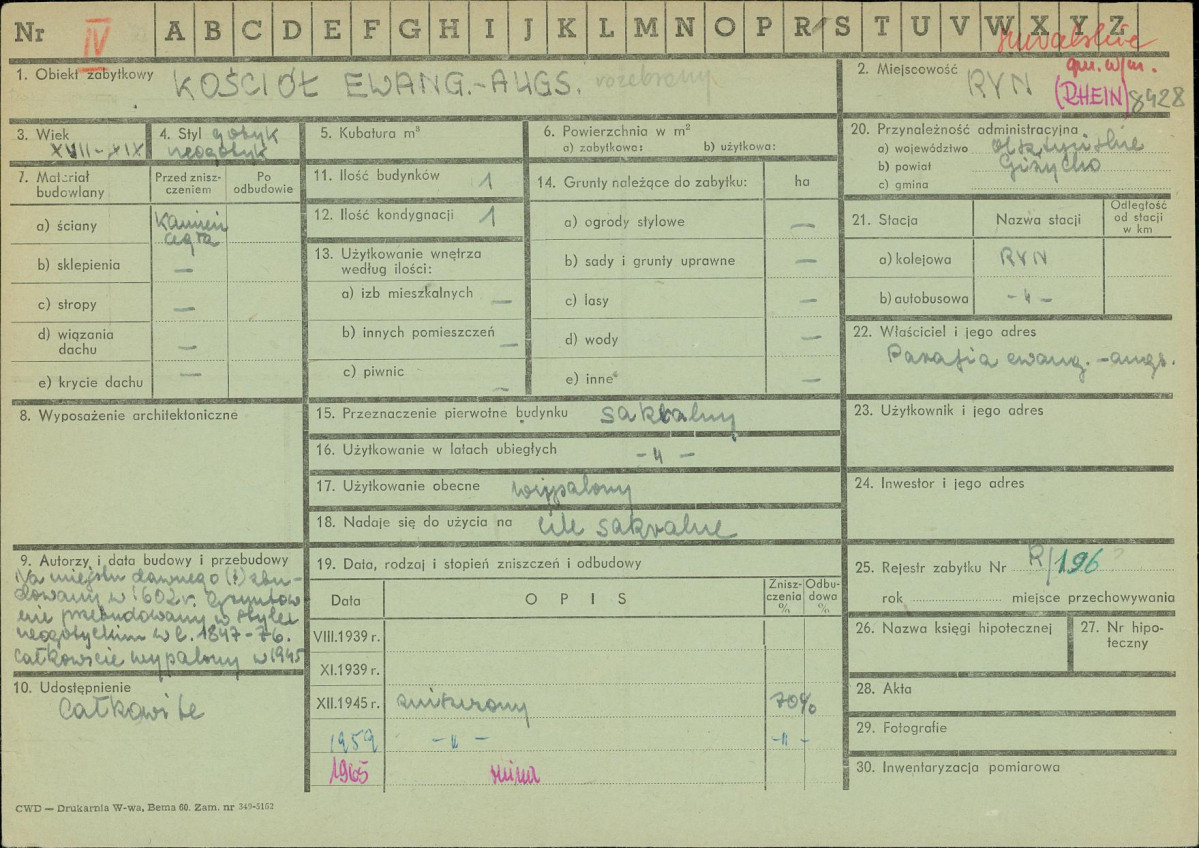 Nr IV A B C D E F G H I J K L M N O P R S T U V W X Y Z
suwalskie
gm. w/m.
1. Obiekt zabytkowy KOŚCIÓŁ EWANG.-AUGS. rozebrany
2. Miejscowość RYN (RHEIN) 8428
3. Wiek XVII-XIX
4. Styl gotyk neogotyk
5. Kubatura m³
6. Powierzchnia w m²
a) zabytkowa: b) użytkowa:
20. Przynależność administracyjna
a) województwo olsztyńskie
b) powiat Giżycko
c) gmina
7. Materiał budowlany
Przed zniszczeniem
Po odbudowie
a) ściany kamień cegła
b) sklepienia —
c) stropy —
d) wiązania dachu —
e) krycie dachu —
11. Ilość budynków 1
12. Ilość kondygnacji 1
13. Użytkowanie wnętrza według ilości:
a) izb mieszkalnych —
b) innych pomieszczeń —
c) piwnic —
14. Grunty należące do zabytku: ha
a) ogrody stylowe —
b) sady i grunty uprawne —
c) lasy —
d) wody —
e) inne —
21. Stacja Nazwa stacji Odległość od stacji w km
a) kolejowa RYN
b) autobusowa -"-
22. Właściciel i jego adres
Parafia ewang.-augs.
8. Wyposażenie architektoniczne
15. Przeznaczenie pierwotne budynku sakralny
16. Użytkowanie w latach ubiegłych -"-
17. Użytkowanie obecne wypalony
18. Nadaje się do użycia na cele sakralne
23. Użytkownik i jego adres
24. Inwestor i jego adres
9. Autorzy i data budowy i przebudowy
Na miejscu dawnego (?) zbu-
dowany w 1602 r. Gruntow-
nie przebudowany w stylu
neogotyckim w l. 1847-76.
Całkowicie wypalony w 1945
10. Udostępnienie
Całkowite
19. Data, rodzaj i stopień zniszczeń i odbudowy
Data OPIS Zniszczenia % Odbudowa %
VIII.1939 r.
XI.1939 r.
XII.1945 r. zniszczony 70%
1959 -"- -"-
1965 ruina
25. Rejestr zabytku Nr R/196?
rok miejsce przechowywania
26. Nazwa księgi hipotecznej
27. Nr hipoteczny
28. Akta
29. Fotografie
30. Inwentaryzacja pomiarowa
CWD — Drukarnia W-wa, Bema 60. Zam. nr 349-5162